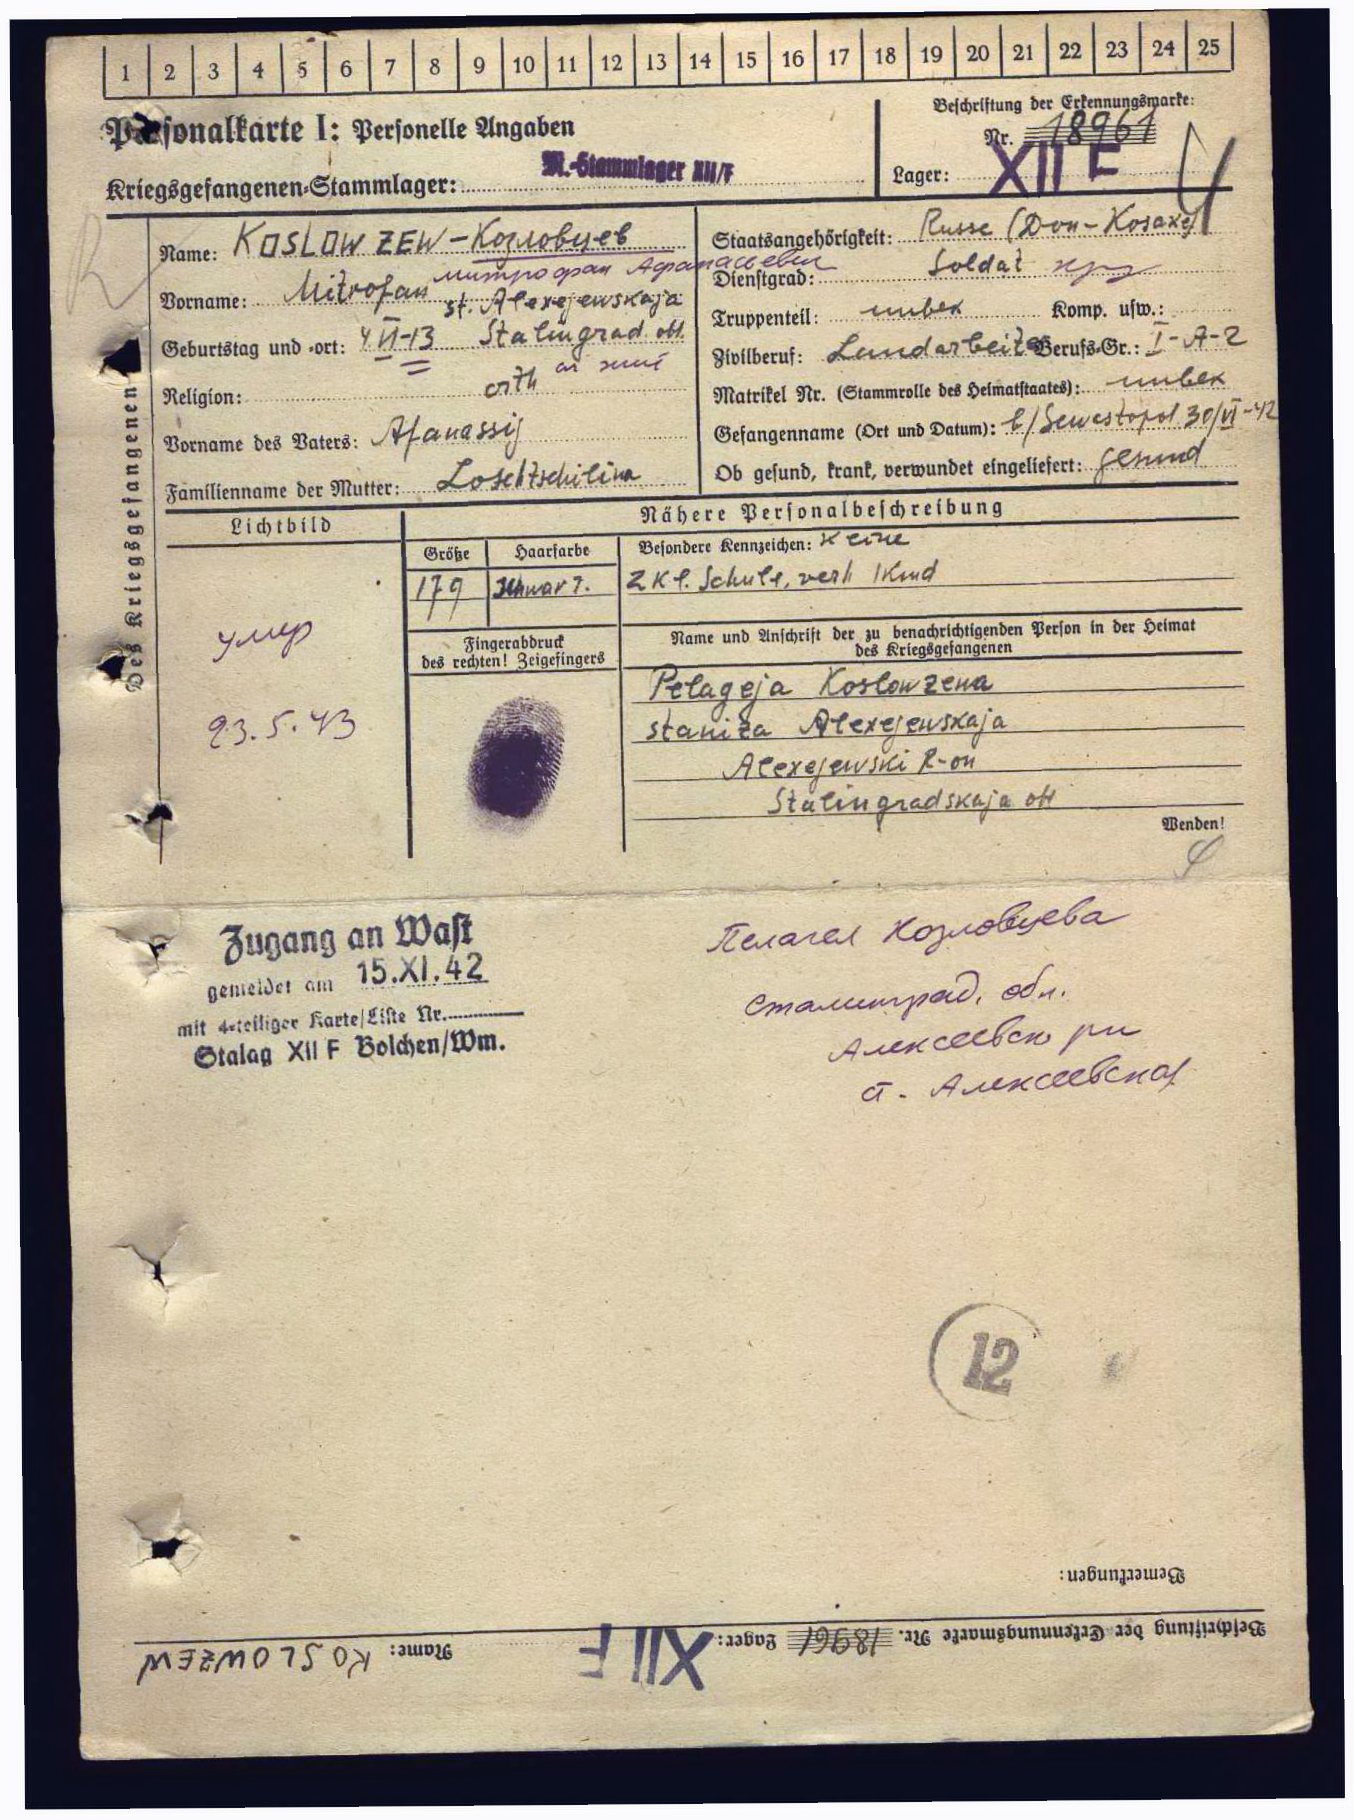 1 2 3 4 5 6 7 8 9 10 11 12 13 14 15 16 17 18 19 20 21 22 23 24 25
Personalkarte I: Personelle Angaben
Kriegsgefangenen-Stammlager: M.-Stammlager XII/F
Beschriftung der Erkennungsmarke:
Nr. 18961
Lager: XII F
Des Kriegsgefangenen
Name: KOSLOWZEW - Козловцев
Митрофан Афанасьевич
Vorname: Mitrofan
st. Alexejewskaja
Geburtstag und -ort: 4 VI-13 Stalingrad. obl.
Religion: orth
Vorname des Vaters: Afanassij
Familienname der Mutter: Loschtschilina
Staatsangehörigkeit: Russe (Don-Kosake)
Dienstgrad: Soldat
Truppenteil: unbek Komp. usw.:
Zivilberuf: Landarbeiter Berufs-Gr.: I-A-2
Matrikel Nr. (Stammrolle des Heimatstaates): unbek
Gefangenname (Ort und Datum): b/Sewestopol 30/VI-42
Ob gesund, krank, verwundet eingeliefert: gesund
Lichtbild
умер
23.5.43
Nähere Personalbeschreibung
Größe Haarfarbe
179 schwarz.
Besondere Kennzeichen: Keine
2 Kl. Schule, verh 1 Kind
Fingerabdruck
des rechten! Zeigefingers
Name und Anschrift der zu benachrichtigenden Person in der Heimat
des Kriegsgefangenen
Pelageja Koslowzewa
staniza Alexejewskaja
Alexejewski R-on
Stalingradskaja obl
Wenden!
Zugang an Wast
gemeldet am 15.XI.42
mit 4-teiliger Karte/Liste Nr.
Stalag XII F Bolchen/Wm.
Пелагея Козловцева
Сталинград. обл.
Алексеевск рн
ст. Алексеевская
12
Bemerkungen:
Beschriftung der Erkennungsmarke Nr. 18961 Lager: XII F Name: KOSLOWZEW